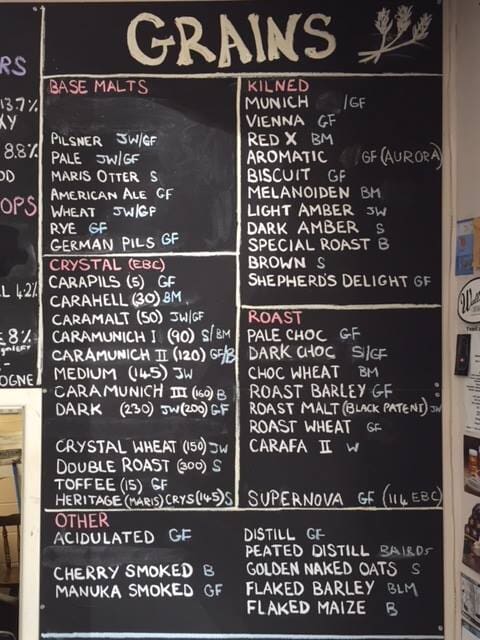 GRAINS
RS
13.7%
XY
8.8%
OD
OPS
L 4.2%
8%
OGNE
BASE MALTS
PILSNER JW/GF
PALE JW/GF
MARIS OTTER S
AMERICAN ALE GF
WHEAT JW/GF
RYE GF
GERMAN PILS GF
KILNED
MUNICH /GF
VIENNA GF
RED X BM
AROMATIC GF (AURORA)
BISCUIT GF
MELANOIDEN BM
LIGHT AMBER JW
DARK AMBER S
SPECIAL ROAST B
BROWN S
SHEPHERD'S DELIGHT GF
CRYSTAL (EBC)
CARAPILS (5) GF
CARAHELL (30) BM
CARAMALT (50) JW/GF
CARAMUNICH I (90) S/BM
CARAMUNICH II (120) GF/B
MEDIUM (145) JW
CARAMUNICH III (160) B
DARK (230) JW (200) GF
CRYSTAL WHEAT (150) JW
DOUBLE ROAST (300) S
TOFFEE (15) GF
HERITAGE (MARIS) CRYS (145) S
ROAST
PALE CHOC GF
DARK CHOC S/GF
CHOC WHEAT BM
ROAST BARLEY GF
ROAST MALT (BLACK PATENT) JW
ROAST WHEAT GF
CARAFA II W
SUPERNOVA GF (114 EBC)
OTHER
ACIDULATED GF
CHERRY SMOKED B
MANUKA SMOKED GF
DISTILL GF
PEATED DISTILL BAIRDS
GOLDEN NAKED OATS S
FLAKED BARLEY BLM
FLAKED MAIZE B